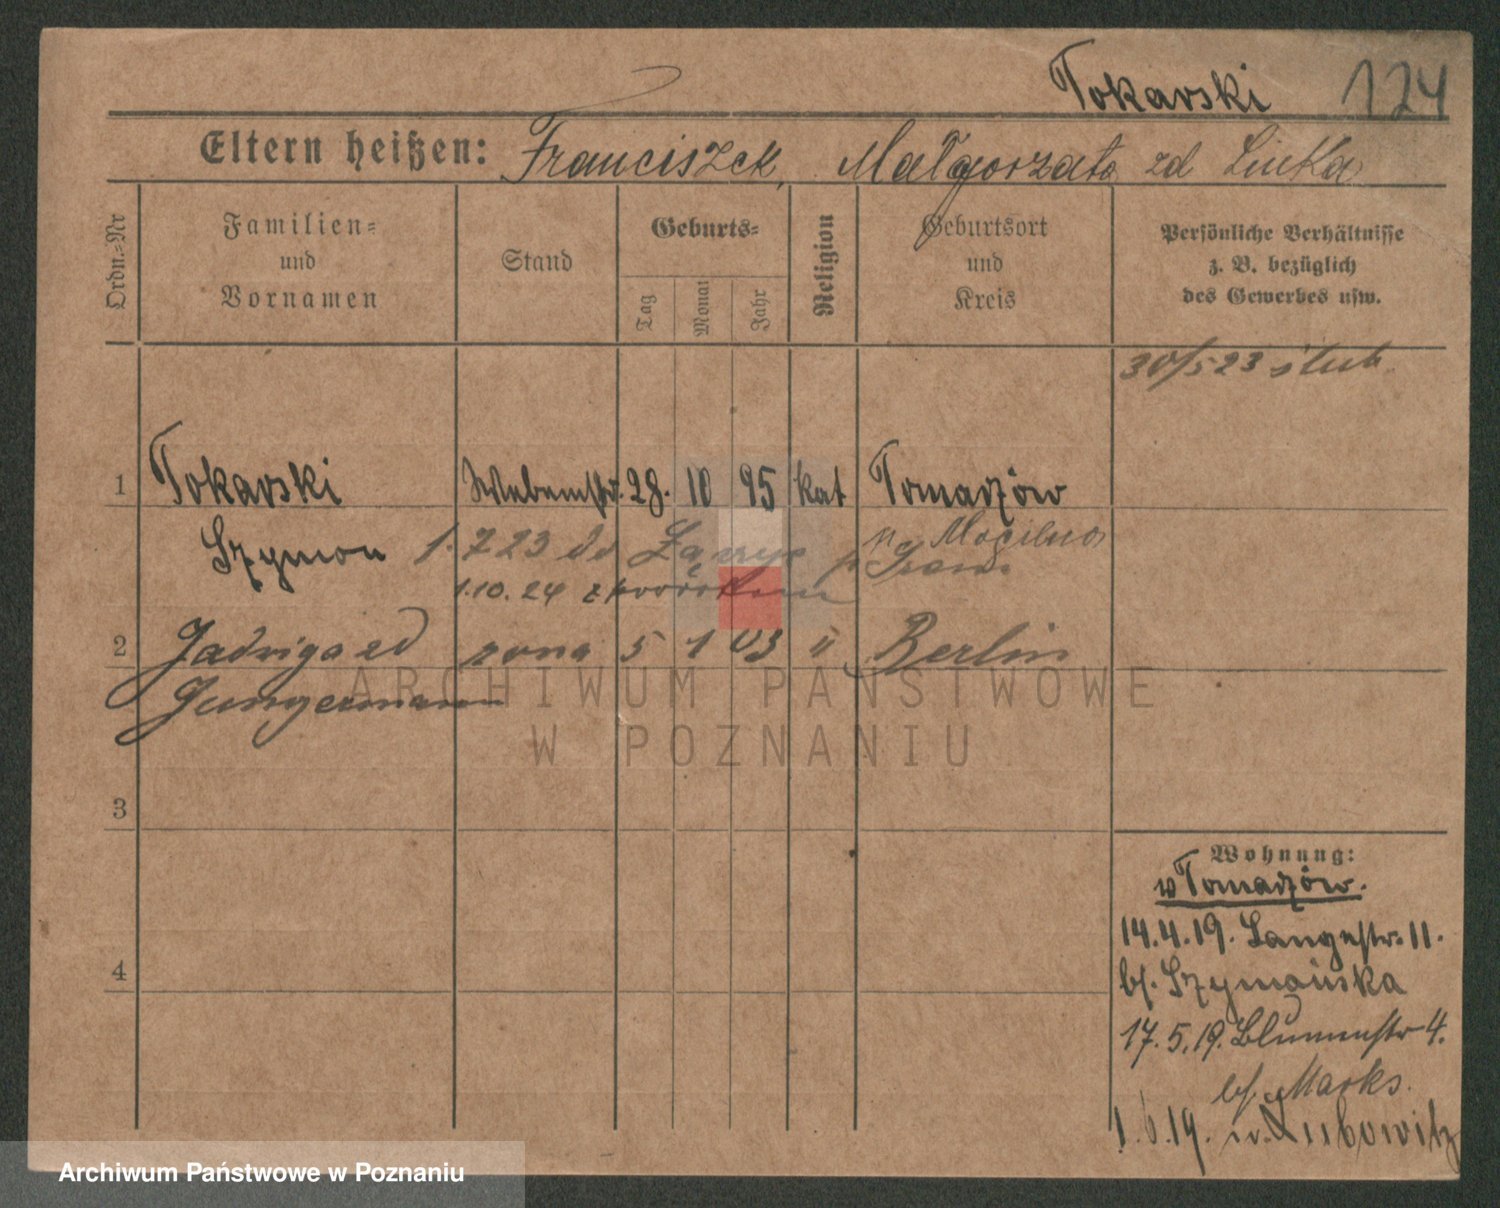 Tokarski 124
Eltern heißen: Franciszek, Małgorzata zd Linka
Ordn.=Nr
Familien=
und
Vornamen
Stand
Geburts=
Tag
Monat
Jahr
Religion
Geburtsort
und
Kreis
Persönliche Verhältnisse
z. B. bezüglich
des Gewerbes usw.
30/5 23 ślub
1 Tokarski 28. 10 95 kat Tomadzów
Szymon 1. 7 23 do p. Mogilno
1.10.24 z powrotem
2 Jadwiga zd żona 5 1 03 " Berlin
Jungermann
3
4
Wohnung:
w Tomadzów.
14.4.19. Langestr. 11.
bf. Szymańska
17.5.19. Blumenstr 4.
bf. Marks.
1.6.19. Lubowitz
ARCHIWUM PAŃSTWOWE
W POZNANIU
Archiwum Państwowe w Poznaniu